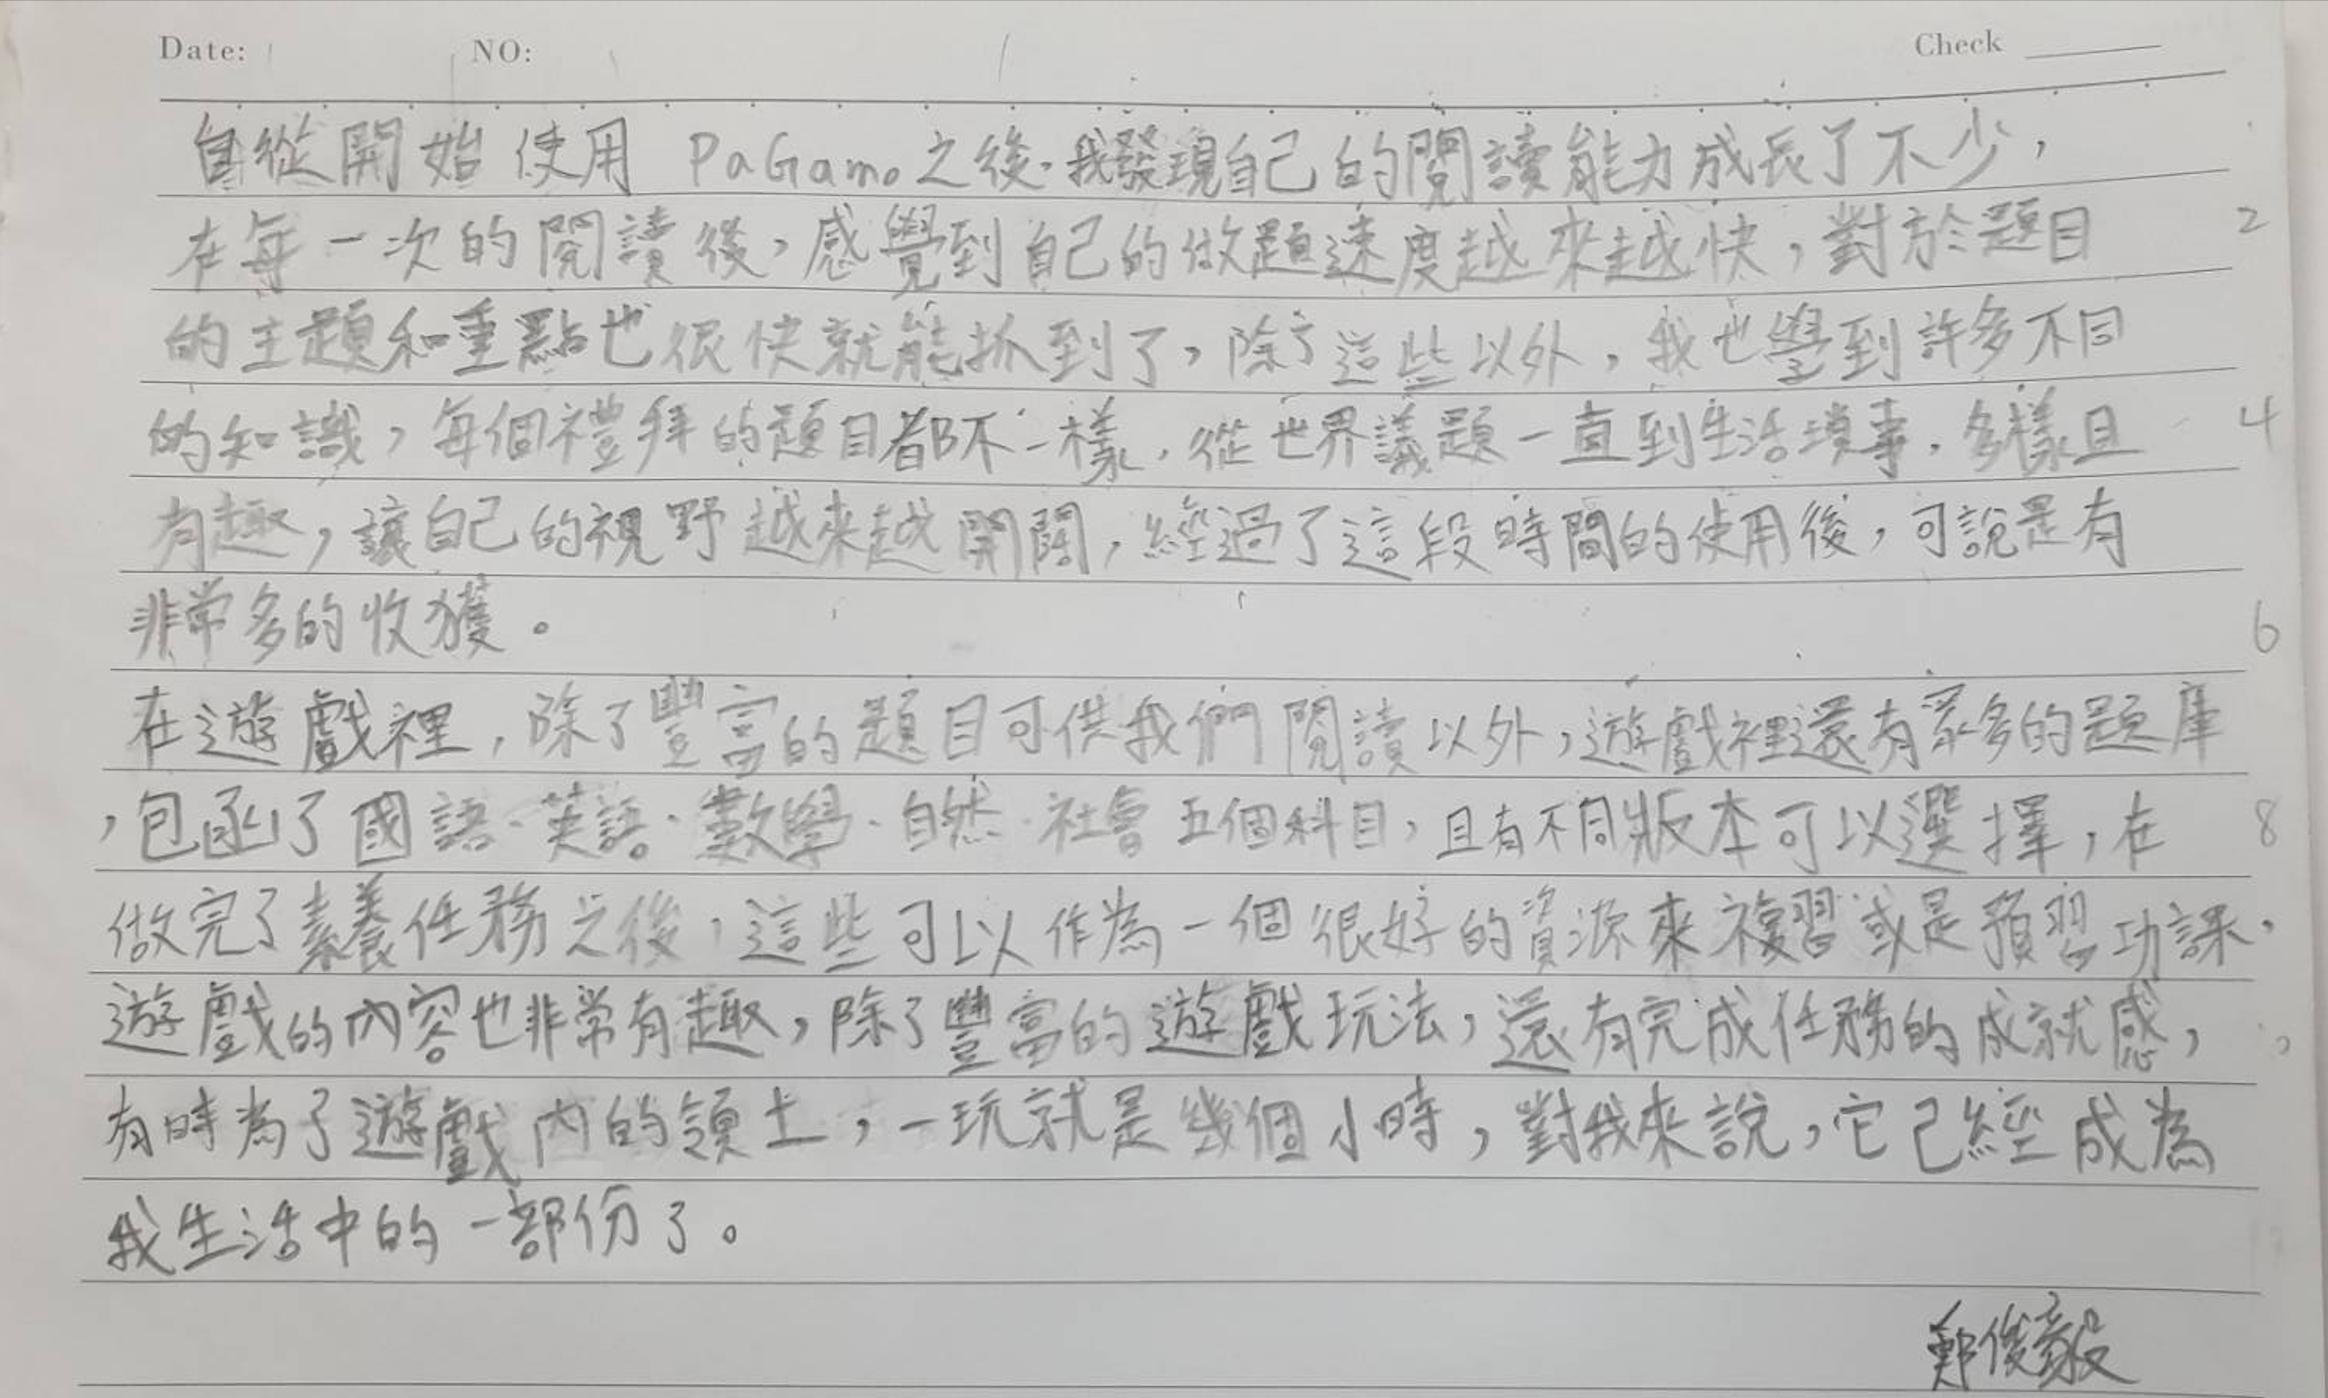 Date: NO: Check
自從開始使用 PaGamo之後,我發現自己的閱讀能力成長了不少,
在每一次的閱讀後,感覺到自己的做題速度越來越快,對於題目
2
的主題和重點也很快就能抓到了,除了這些以外,我也學到許多不同
的知識,每個禮拜的題目都不一樣,從世界議題一直到生活瑣事,多樣且
4
有趣,讓自己的視野越來越開闊,經過了這段時間的使用後,可說是有
非常多的收獲。
6
在遊戲裡,除了豐富的題目可供我們閱讀以外,遊戲裡還有眾多的題庫
,包函了國語、英語、數學、自然、社會五個科目,且有不同版本可以選擇,在
8
做完了素養任務之後,這些可以作為一個很好的資源來複習或是預習功課,
遊戲的內容也非常有趣,除了豐富的遊戲玩法,還有完成任務的成就感,
有時為了遊戲內的領土,一玩就是幾個小時,對我來說,它已經成為
我生活中的一部份了。
鄭俊毅